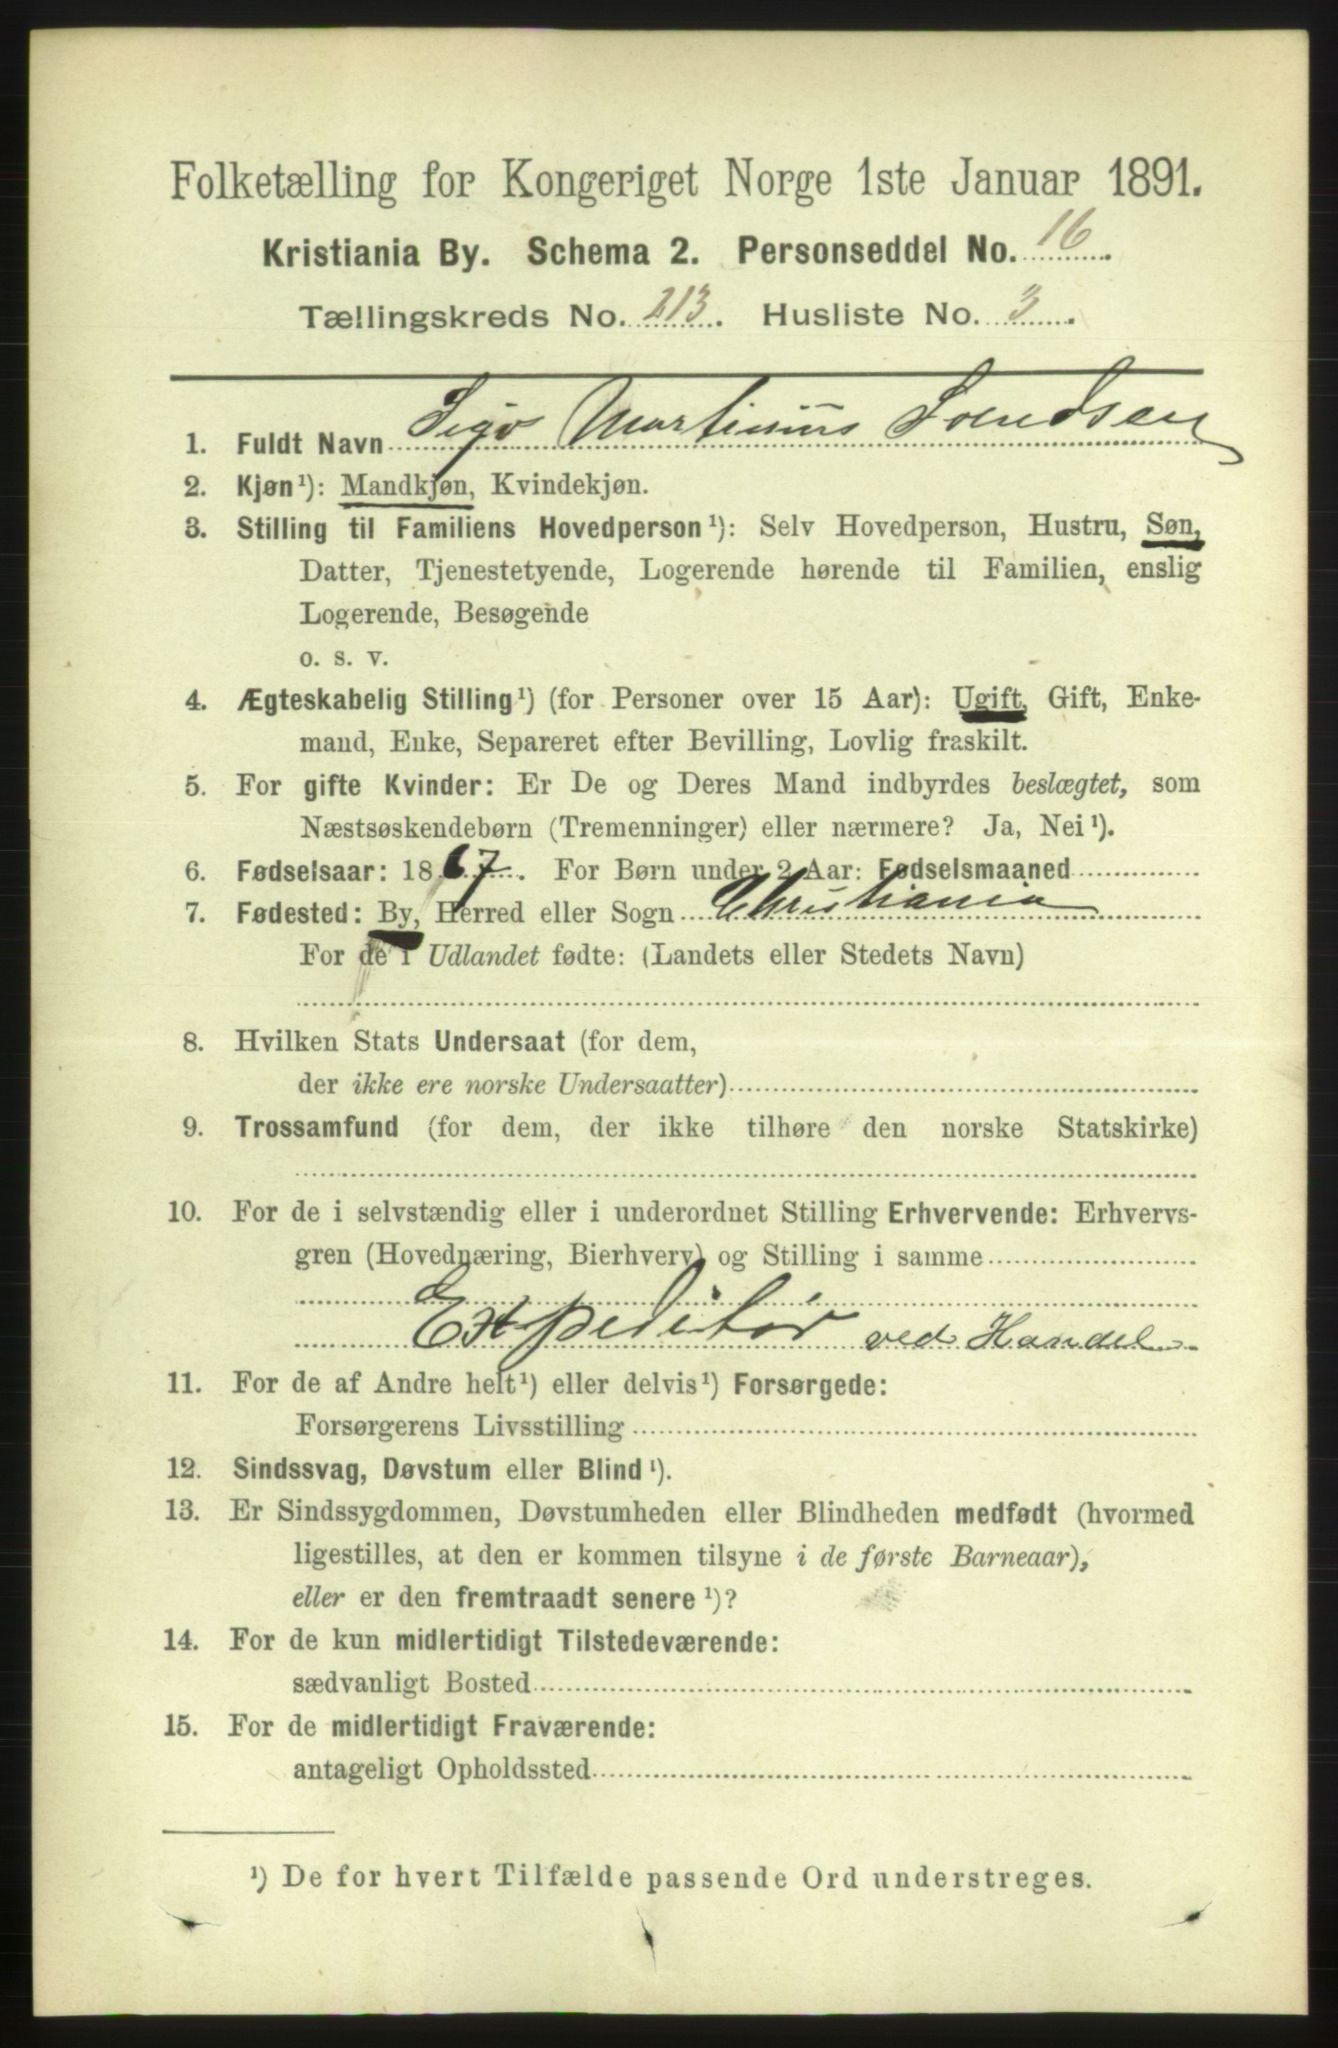 Folketælling for Kongeriget Norge 1ste Januar 1891.
Kristiania By. Schema 2. Personseddel No. 16.
Tællingskreds No. 213. Husliste No. 3.
1. Fuldt Navn Sigv Martinius Svendsen
2. Kjøn¹): Mandkjøn, Kvindekjøn.
3. Stilling til Familiens Hovedperson¹): Selv Hovedperson, Hustru, Søn,
Datter, Tjenestetyende, Logerende hørende til Familien, enslig
Logerende, Besøgende
o. s. v.
4. Ægteskabelig Stilling¹) (for Personer over 15 Aar): Ugift, Gift, Enke-
mand, Enke, Separeret efter Bevilling, Lovlig fraskilt.
5. For gifte Kvinder: Er De og Deres Mand indbyrdes beslægtet, som
Næstsøskendebørn (Tremenninger) eller nærmere? Ja, Nei¹).
6. Fødselsaar: 1867. For Børn under 2 Aar: Fødselsmaaned
7. Fødested: By, Herred eller Sogn Christiania
For de i Udlandet fødte: (Landets eller Stedets Navn)
8. Hvilken Stats Undersaat (for dem,
der ikke ere norske Undersaatter)
9. Trossamfund (for dem, der ikke tilhøre den norske Statskirke)
10. For de i selvstændig eller i underordnet Stilling Erhvervende: Erhvervs-
gren (Hovednæring, Bierhverv) og Stilling i samme
Expeditør ved Handel
11. For de af Andre helt¹) eller delvis¹) Forsørgede:
Forsørgerens Livsstilling
12. Sindssvag, Døvstum eller Blind¹).
13. Er Sindssygdommen, Døvstumheden eller Blindheden medfødt (hvormed
ligestilles, at den er kommen tilsyne i de første Barneaar),
eller er den fremtraadt senere¹)?
14. For de kun midlertidigt Tilstedeværende:
sædvanligt Bosted
15. For de midlertidigt Fraværende:
antageligt Opholdssted
¹) De for hvert Tilfælde passende Ord understreges.